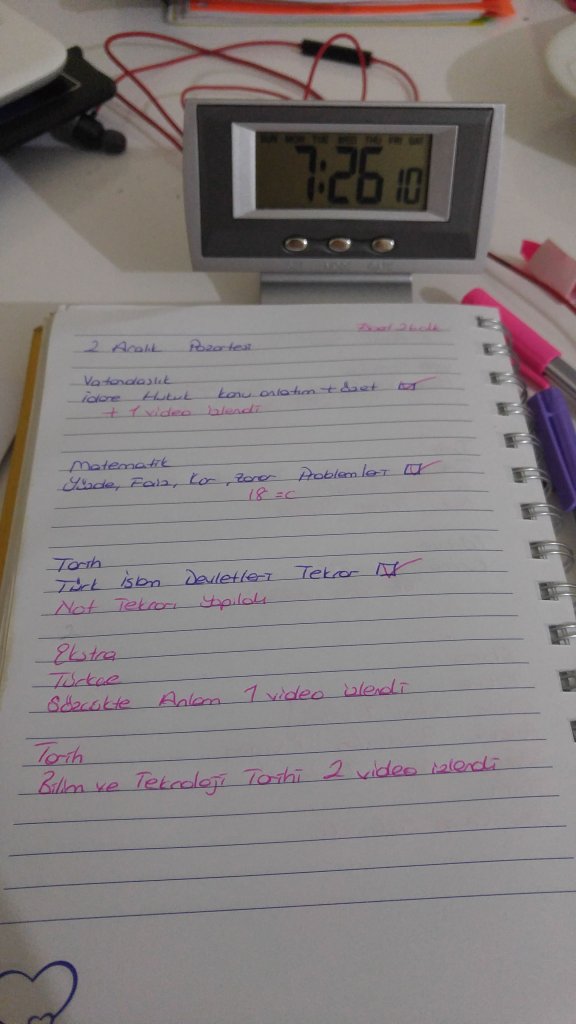 SUN MON TUE WED THU FRI SAT
7:26 10
2 Aralık Pazartesi
Vatandaşlık
idare Hukuk konu anlatım + özet
+ 1 video izlendi
Matematik
Yüzde, Faiz, Kar, Zarar Problemleri
18 = c
Tarih
Türk islam Devletleri Tekrar
Not Tekrarı Yapıldı
Ekstra
Türkçe
Sözcükte Anlam 1 video izlendi
Tarih
Bilim ve Teknoloji Tarihi 2 video izlendi